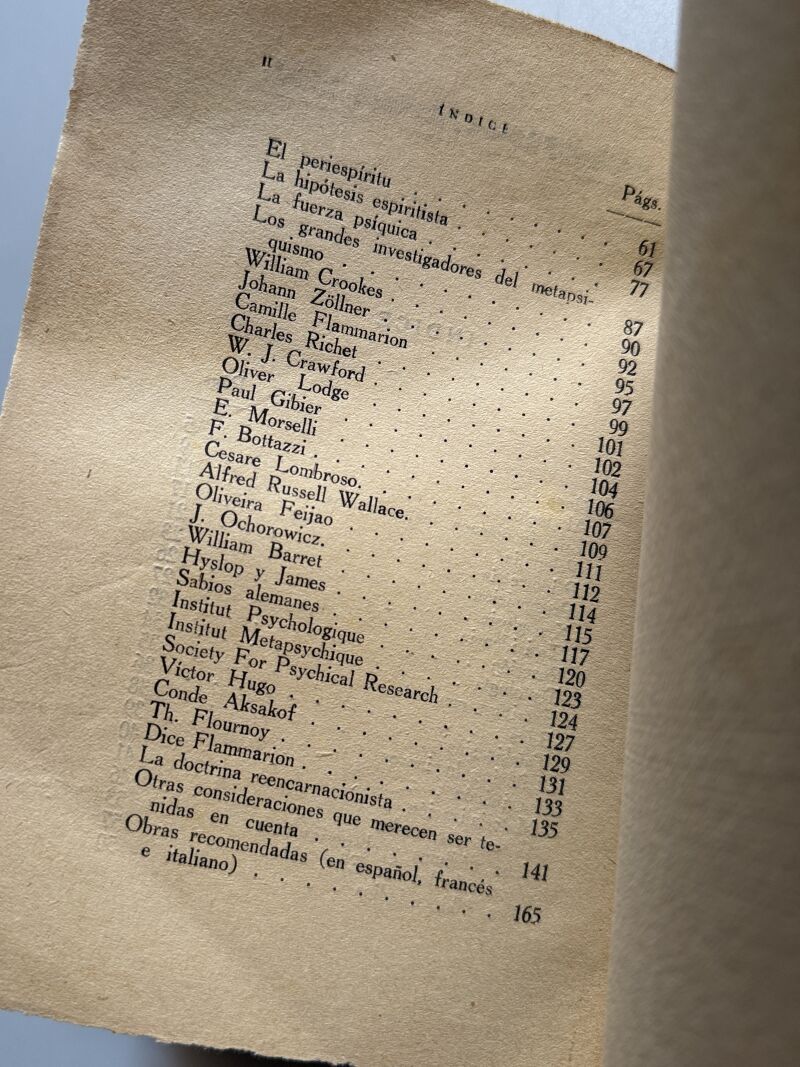 II
ÍNDICE
Págs.
El periespíritu . . . . . . . . . 61
La hipótesis espiritista . . . . . . . 67
La fuerza psíquica . . . . . . . . 77
Los grandes investigadores del metapsi-
quismo . . . . . . . . . . 87
William Crookes . . . . . . . . . 90
Johann Zöllner . . . . . . . . . 92
Camille Flammarion . . . . . . . . 95
Charles Richet . . . . . . . . . 97
W. J. Crawford . . . . . . . . . 99
Oliver Lodge . . . . . . . . . 101
Paul Gibier . . . . . . . . . 102
E. Morselli . . . . . . . . . 104
F. Bottazzi . . . . . . . . . 106
Cesare Lombroso. . . . . . . . . 107
Alfred Russell Wallace. . . . . . . 109
Oliveira Feijao . . . . . . . . . 111
J. Ochorowicz. . . . . . . . . 112
William Barret . . . . . . . . . 114
Hyslop y James . . . . . . . . . 115
Sabios alemanes . . . . . . . . . 117
Institut Psychologique . . . . . . . 120
Institut Metapsychique . . . . . . . 123
Society For Psychical Research . . . . . 124
Víctor Hugo . . . . . . . . . 127
Conde Aksakof . . . . . . . . . 129
Th. Flournoy . . . . . . . . . 131
Dice Flammarion . . . . . . . . 133
La doctrina reencarnacionista . . . . . 135
Otras consideraciones que merecen ser te-
nidas en cuenta . . . . . . . . 141
Obras recomendadas (en español, francés
e italiano) . . . . . . . . . 165